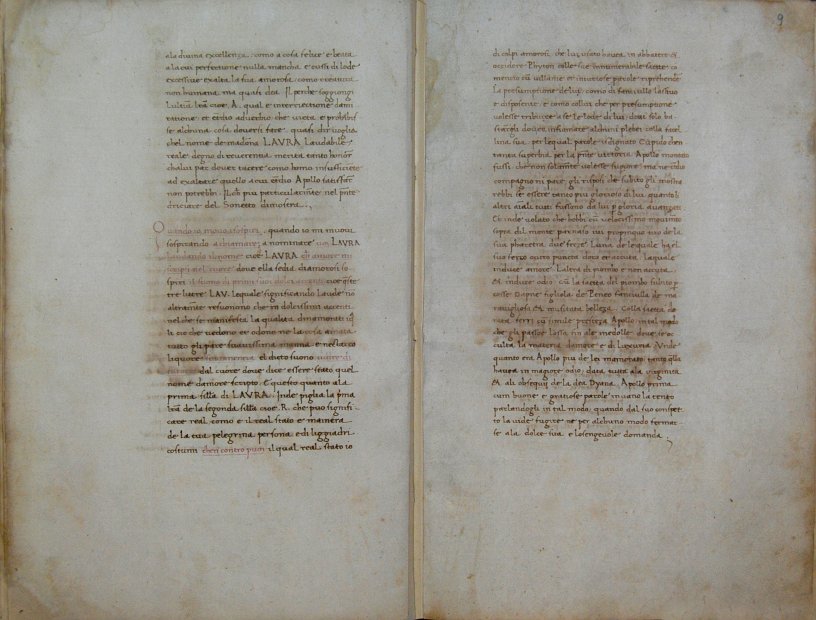 ala divina excellenza, como a cosa felice e beata
ala cui perfectione nulla mancha, e cussi di lode
excessive exalta la sua amorosa, como creatura
non humana ma quasi dea. Il perche soggiongi
qual e interiectione dami
ratione, et etidio adverbio, che vieta e prohibisse
se alchuna cosa doversi fare, quasi dir voglia
chel nome de madona LAVRA laudabile
reale degno di reverentia merita tanto honor
chalui par dover tacere como homo insufficiente
ad exaltare quello a cui etidio Apollo satisfar
non potrebbi. particularmente nel
driciare del Sonetto dimostra.
Quando io movo i sospiri, quando io mi muovi
sospirando a chiamare, a nominare voi LAVRA
laudando il nome cioe LAVRA chi amore mi
scrisse nel cuore dove ella sedia di amorosi so
spiri il suono di primi suoi dolci accenti cioe
tre litere LAV. lequale significando laude no
altramente resuonono che
nel che se manifesta la qualita dinamorati
li cio che vedono et odono ne la cosa amata
tutto gli pare suavissima manna e nectareo
liquore el dicto suono
dal cuore dove dice essere stato quel
nome damore scripto. E questo quanto ala
prima silla di LAVRA. Inde piglia la pma
lra de la segonda silla cioe R. che puo signifi
care real como e il real stato e mainera
de la tua pelegrina persona e di liggiadri
costumi chen contro poi il qual real stato io
9
di colpi amorosi che lui usato haveva in abbatere et
occidere Phyton colle sue innumerabile sagitte co
mencio cum villanie et iniuriose parole riprehendere
la presumptione de lui, como di fanciullo lascivo
e disposente, e como collui che per presumptione
volesse tribuire a se le lode di lui, dovi solo ba
stargli dovea infiamare alchuni plebei colla facel
lina sua, per lequal parole isdignato Cupido chen
tanta superbia per la victoria Apollo montato
fussi che non solamente volesse
compagno ni pare, gli rispose che subito gli mostra
rebbi se essere tanto piu glorioso di lui quanto
altri aiali tutti fussono da lui gloria avanzati.
Et inde volato che hebbi cum velocissimo movimento
sopra del monte parnaso ivi propinquo tiro de la
sua pharetra due freze. Luna de lequale ha el
suo ferzo quito puncta doro et accuta, laquale
induce amore. Laltra di piombo e non accuta.
Et induce odio. Cum la sagitta del piombo subito p
cosse Daphne figliola de Peneo fanciulla de ma
ravigliosa et inusitata bellezza. Colla sagitta do
rata feri cum simile prestezza Apollo in tal modo
che gli passoe lossa, fin ale medolle dove se oc
culta la materia damore e di luxuria. Unde
quanto era Apollo piu de lei inamorato, tanto ella
haveva in magiore odio, data tutta ala virginita
Et ali obsequii de la dea Dyana. Apollo prima
cum buone e gratiose parole in vano la tento
parlandogli in tal modo, quando dal suo conspec
to la vide fugire ne per alchuno modo fermar
se ala dolce sua e losengevole domanda.